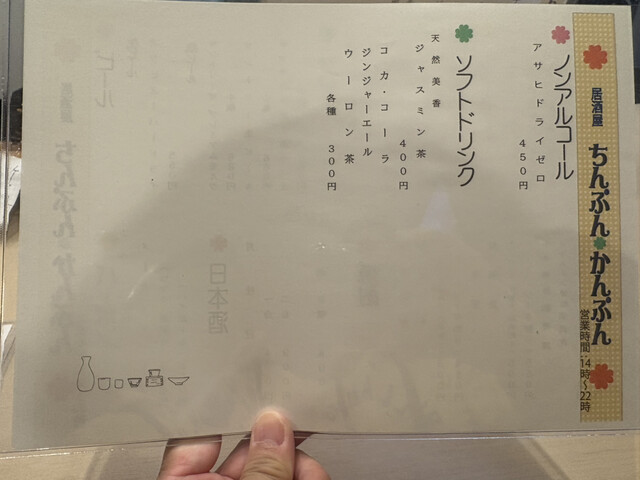 居酒屋 ちんぷんかんぷん
営業時間:14時〜22時
ノンアルコール
アサヒドライゼロ
450円
ソフトドリンク
天然美香
ジャスミン茶
400円
コカ・コーラ
ジンジャーエール
ウーロン茶
各種 300円
日本酒
ビール
居酒屋 ちんぷんかんぷん